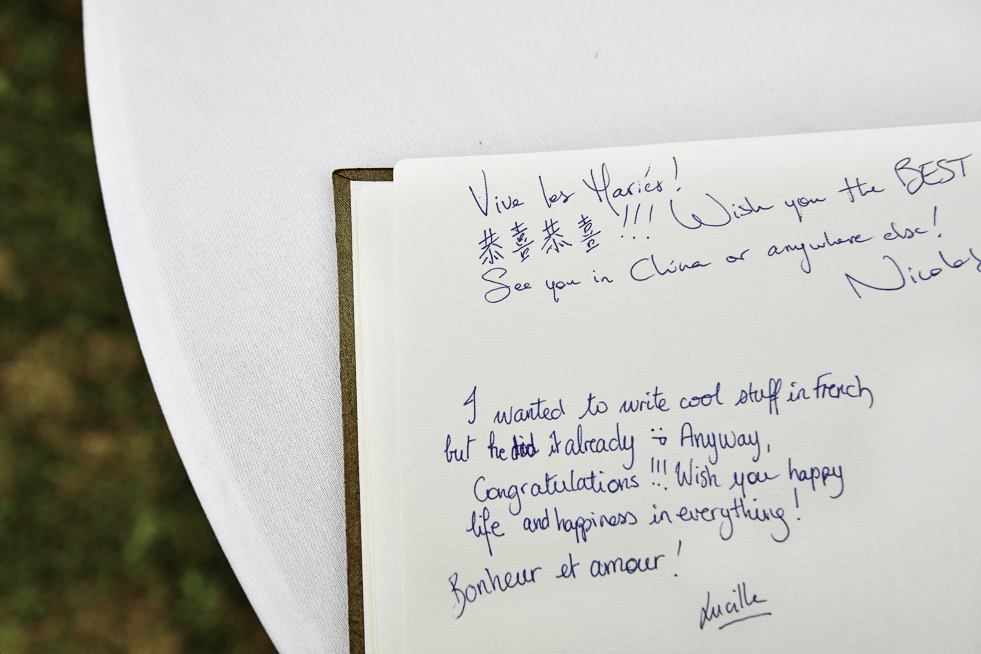 Vive les Mariés!
恭喜恭喜!!! Wish you the BEST
See you in China or anywhere else!
Nicolas
I wanted to write cool stuff in French
but he did it already Anyway,
Congratulations !!! Wish you happy
life and happiness in everything!
Bonheur et amour!
Lucille